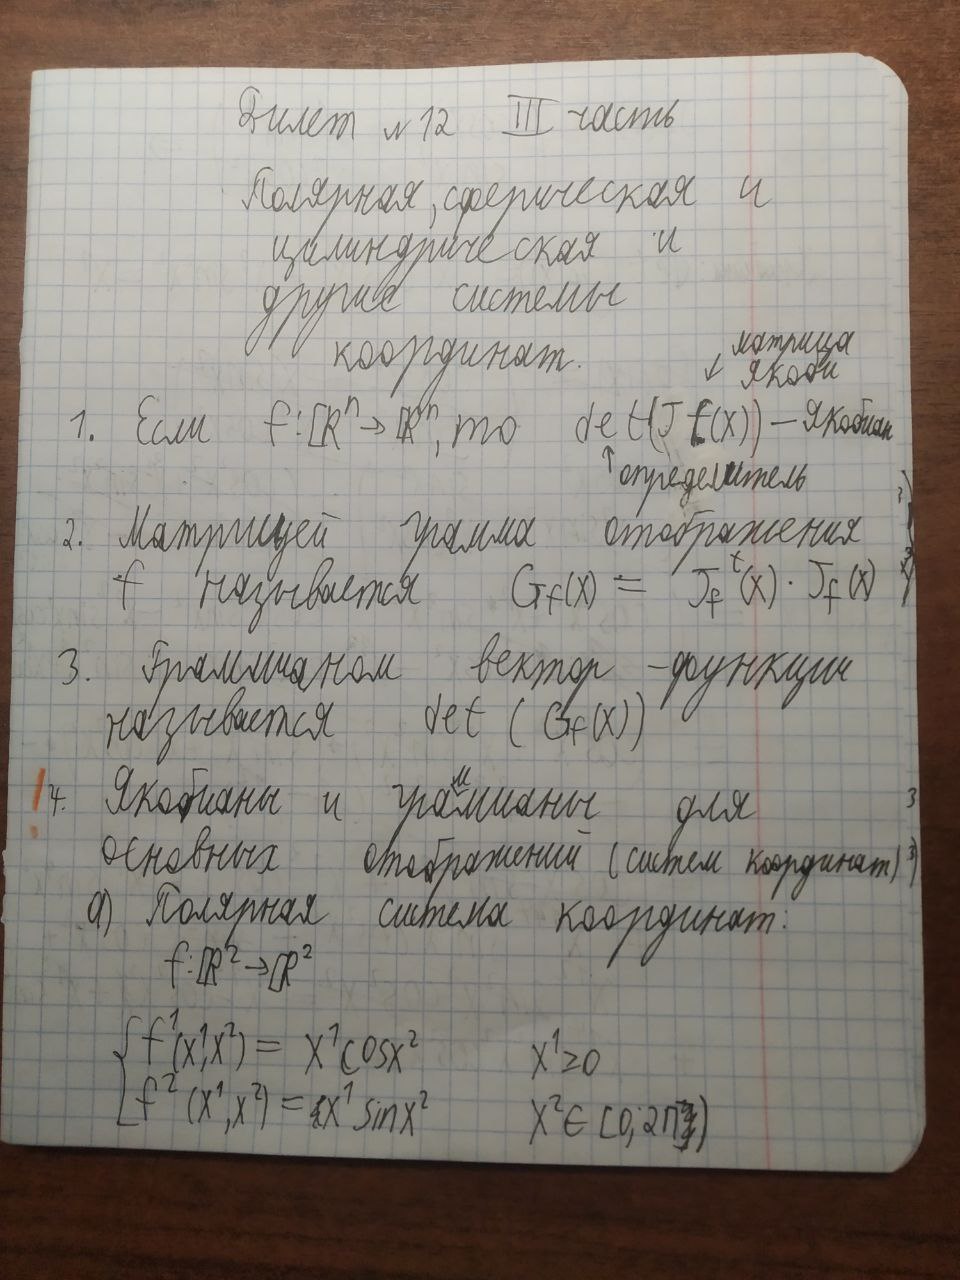 Билет №12 III часть
Полярная, сферическая и
цилиндрическая и
другие системы
координат.
матрица
Якоби
1. Если f: ℝⁿ → ℝⁿ, то det(J f(x)) – Якобиан
↑ определитель
2. Матрицей грамма отображения
f называется G_f(x) = J_f^t(x) · J_f(x)
3. Граммианом вектор-функции
называется det (G_f(x))
! 4. Якобианы и граммианы для
основных отображений (систем координат)
а) Полярная система координат:
f: ℝ² → ℝ²
f¹(x¹,x²) = x¹cosx² x¹≥0
f²(x¹,x²) = x¹sinx² x²∈[0;2π)